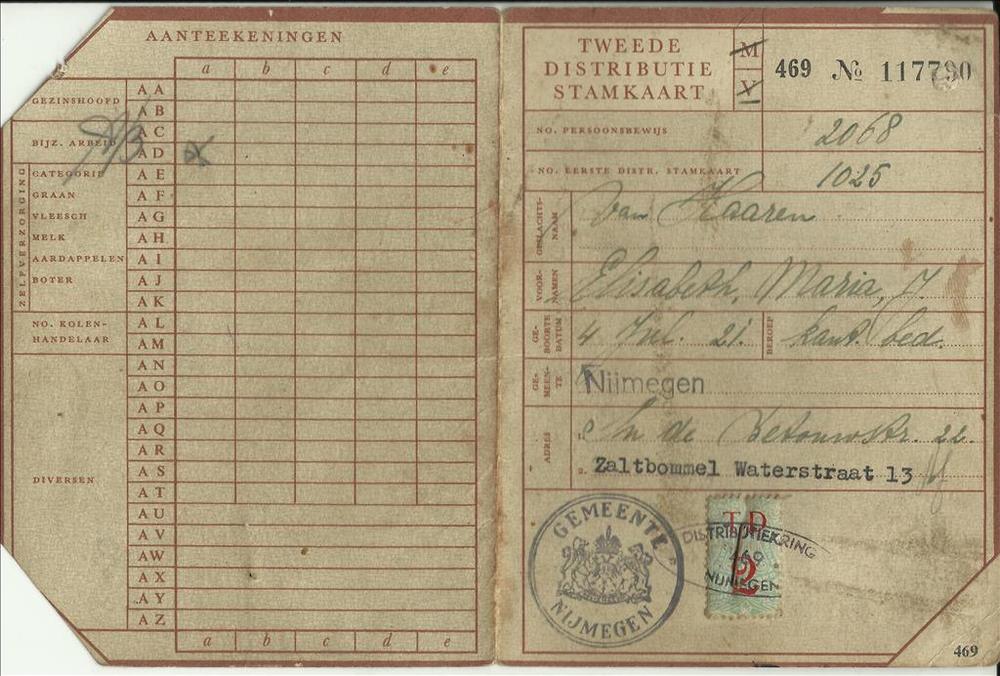 AANTEEKENINGEN
a b c d e
GEZINSHOOFD
BIJZ. ARBEID
ZELFVERZORGING
CATEGORIE
GRAAN
VLEESCH
MELK
AARDAPPELEN
BOTER
NO. KOLEN-
HANDELAAR
DIVERSEN
AA
AB
AC
AD
AE
AF
AG
AH
AI
AJ
AK
AL
AM
AN
AO
AP
AQ
AR
AS
AT
AU
AV
AW
AX
AY
AZ
a b c d e
TWEEDE
DISTRIBUTIE
STAMKAART
M
V
469 No 117790
NO. PERSOONSBEWIJS 2068
NO. EERSTE DISTR. STAMKAART 1025
GESLACHTS-
NAAM
van Haaren
VOOR-
NAMEN
Elisabeth, Maria, J.
GE-
BOORTE
DATUM
4 Jul. 21.
BEROEP
kant. bed.
GE-
MEEN-
TE
Nijmegen
ADRES
1. In de Betouwstr. 22.
2. Zaltbommel Waterstraat 13
GEMEENTE
NIJMEGEN
T D
2
DISTRIBUTIEKRING
469
NIJMEGEN
469